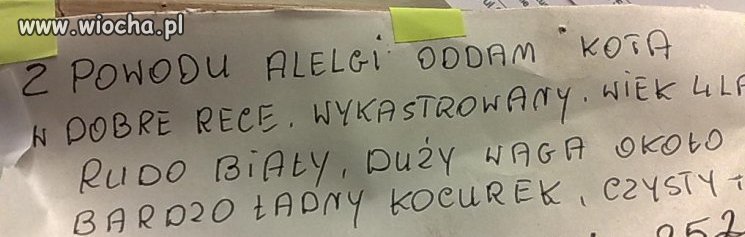 www.wiocha.pl
Z POWODU ALELGI ODDAM KOTA
W DOBRE RECE. WYKASTROWANY. WIEK 4 LA
RUDO BIAŁY, DUŻY WAGA OKOŁO
BARDZO ŁADNY KOCUREK, CZYSTY
252